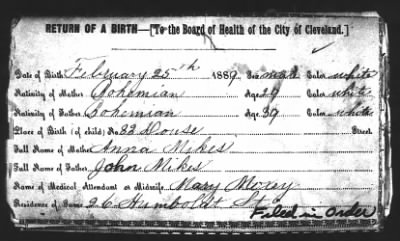 RETURN OF A BIRTH—[To the Board of Health of the City of Cleveland.]
Date of Birth February 25th 1889 Sex male Color white
Nativity of Mother Bohemian Age 29 Color white
Nativity of Father Bohemian Age 39 Color white
Place of Birth (of child) No 82 Douse Street
Full Name of Mother Anna Mikes
Full Name of Father John Mikes
Name of Medical Attendant or Midwife Mary
Residence of Same 26 Humboldt St
Filed in Order